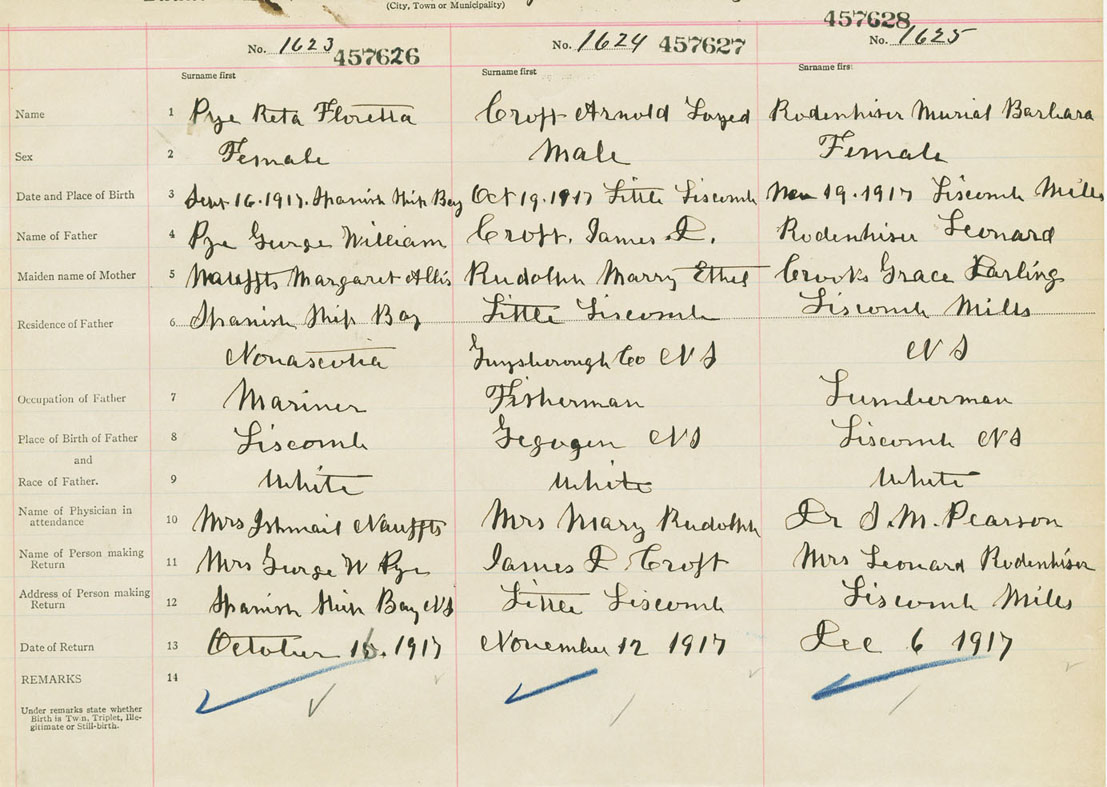 (City, Town or Municipality)
No. 1623 457626 No. 1624 457627 457628 No. 1625
Surname first Surname first Surname first
Name 1 Pye Reta Floretta Croft Arnold Loyed Rodenhiser Murial Barbara
Sex 2 Female Male Female
Date and Place of Birth 3 Sept 16. 1917. Spanish Ship Bay Oct 19. 1917 Little Liscomb Nov 19. 1917 Liscomb Mills
Name of Father 4 Pye George William Croft, James D. Rodenhiser Leonard
Maiden name of Mother 5 Nauffts Margaret Allis Rudolph Marry Ethel Crooks Grace Darling
Residence of Father 6 Spanish Ship Bay Little Liscomb Liscomb Mills
Novascotia Guysborough Co N S N S
Occupation of Father 7 Mariner Fisherman Lumberman
Place of Birth of Father 8 Liscomb Gegogen N S Liscomb N S
and
Race of Father. 9 White White White
Name of Physician in
attendance 10 Mrs Ishmail Nauffts Mrs Mary Rudolph Dr S. M. Pearson
Name of Person making
Return 11 Mrs George W Pye James D Croft Mrs Leonard Rodenhiser
Address of Person making
Return 12 Spanish Ship Bay N S Little Liscomb Liscomb Mills
Date of Return 13 October 16. 1917 November 12 1917 Dec 6 1917
REMARKS 14
Under remarks state whether
Birth is Twin, Triplet, Ille-
gitimate or Still-birth.